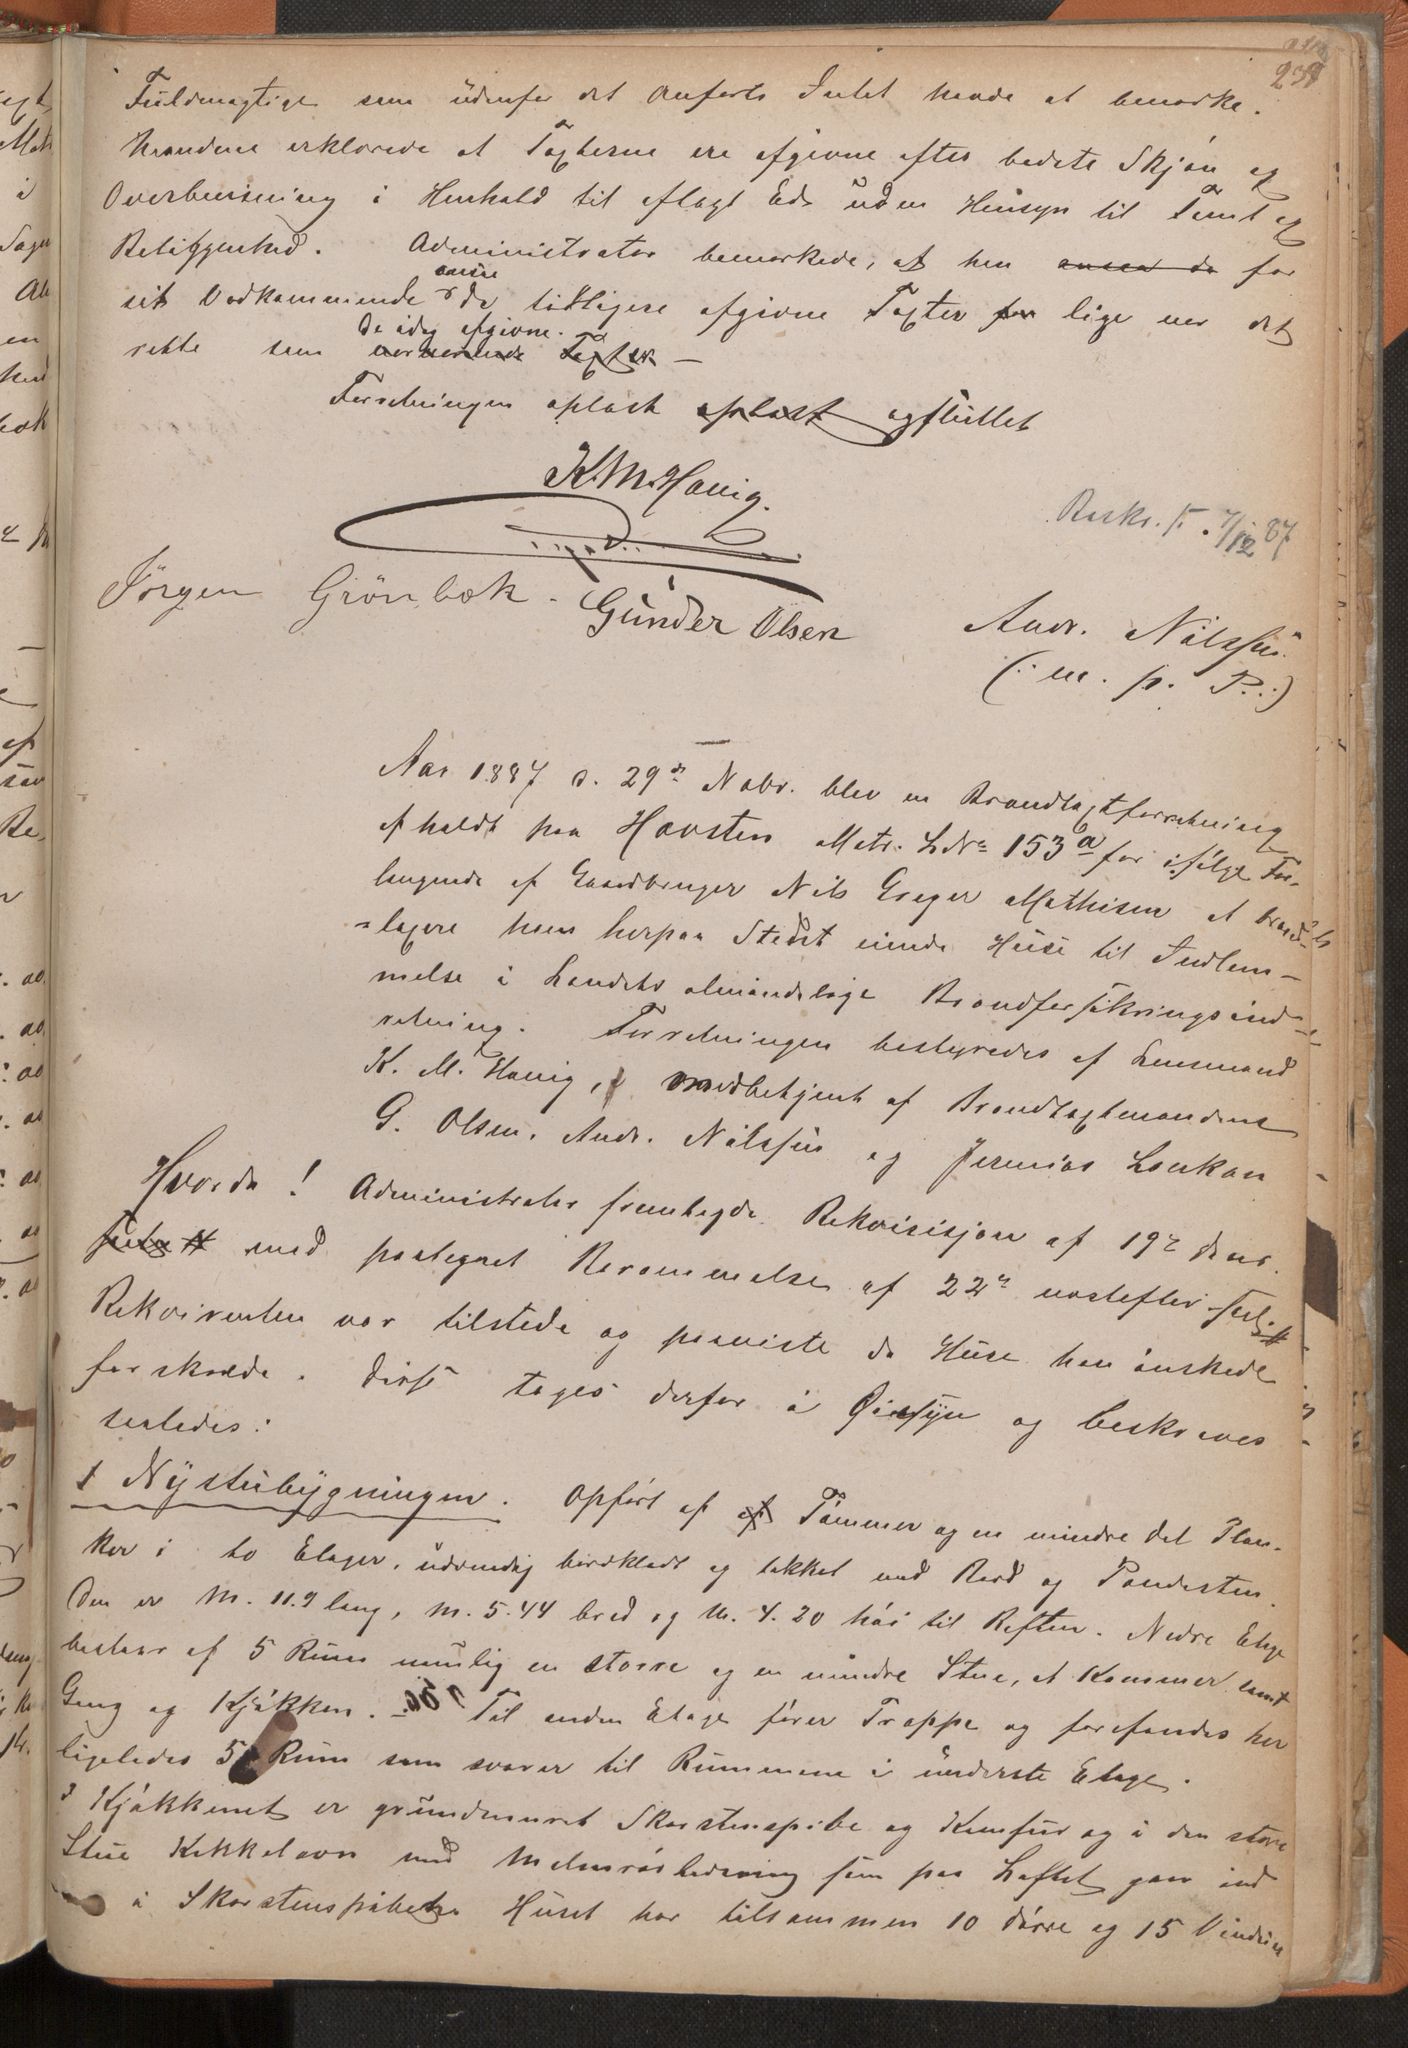 238
Fuldmægtige som udenfor det Anførte Intet havde at bemærke.
Mændene erklærede at Taxterne ere afgivne efter bedste Skjøn og
Overbevisning i Henhold til aflagt Ed uden Hensyn til Tomt og
Beliggenhed. Administrator bemærkede, at han ansea de for
sit Vedkommende ansaa de tidligere afgivne Taxter for lige nær det
rette som nærværende Taxter de idag afgivne. —
Forretningen oplæst oplæst og sluttet
K. M. Hauig.
Beskr. f. 7/12 87
Jørgen Grönbæk. Gunder Olsen Andr. Nilssen
(: m. p. P. :)
Aar 1887 d. 29de Novbr. blev en Brandtaxtforretning
afholdt paa Havsten Matr. L.No 153a for ifølge For-
langende af Gaardbruger Nils Greger Mathisen at brand-
taxere hans herpaa Stedet eiende Huse til Indlem-
melse i Landets almindelige Brandforsikringsind-
retning. Forretningen bestyredes af Lensmand
K. M. Hauig, medbetjent af Brandtaxtmændene
G. Olsen, Andr. Nilssen og Jermias
Hvorda! Administrator fremlagde Rekvisisjon af 19de dens.
med paategnet Berammelse af 22de næstefter
Rekvirenten var tilstede og paaviste de Huse han ønskede
forskrede. Disse toges derfor i Øiesyn og beskreves
saaledes:
1 Nystubygningen. Opført af af Tømmer og en mindre Del Plan-
ker i to Etager, udvendig bordklædt og tækket med Bord og Pandesten.
Den er M. 11.9 lang, M. 5.44 bred og M. 4.20 høi til Røften. Nedre Etage
bestaar af 5 Rum nemlig en større og en mindre Stue, et Kammer, samt
Gang og Kjøkken. Til anden Etage fører Trappe og forefandes her
ligeledes 5 Rum som svarer til Rummene i underste Etage.
I Kjøkkenet er grundmuret Skorstenspibe og Komfur og i den store
Stue Kakkelovn med Malmrørledning som paa Loftet gaar ind
i Skorstenspiben Huset har tilsammen 10 Dørre og 15 Vinduer